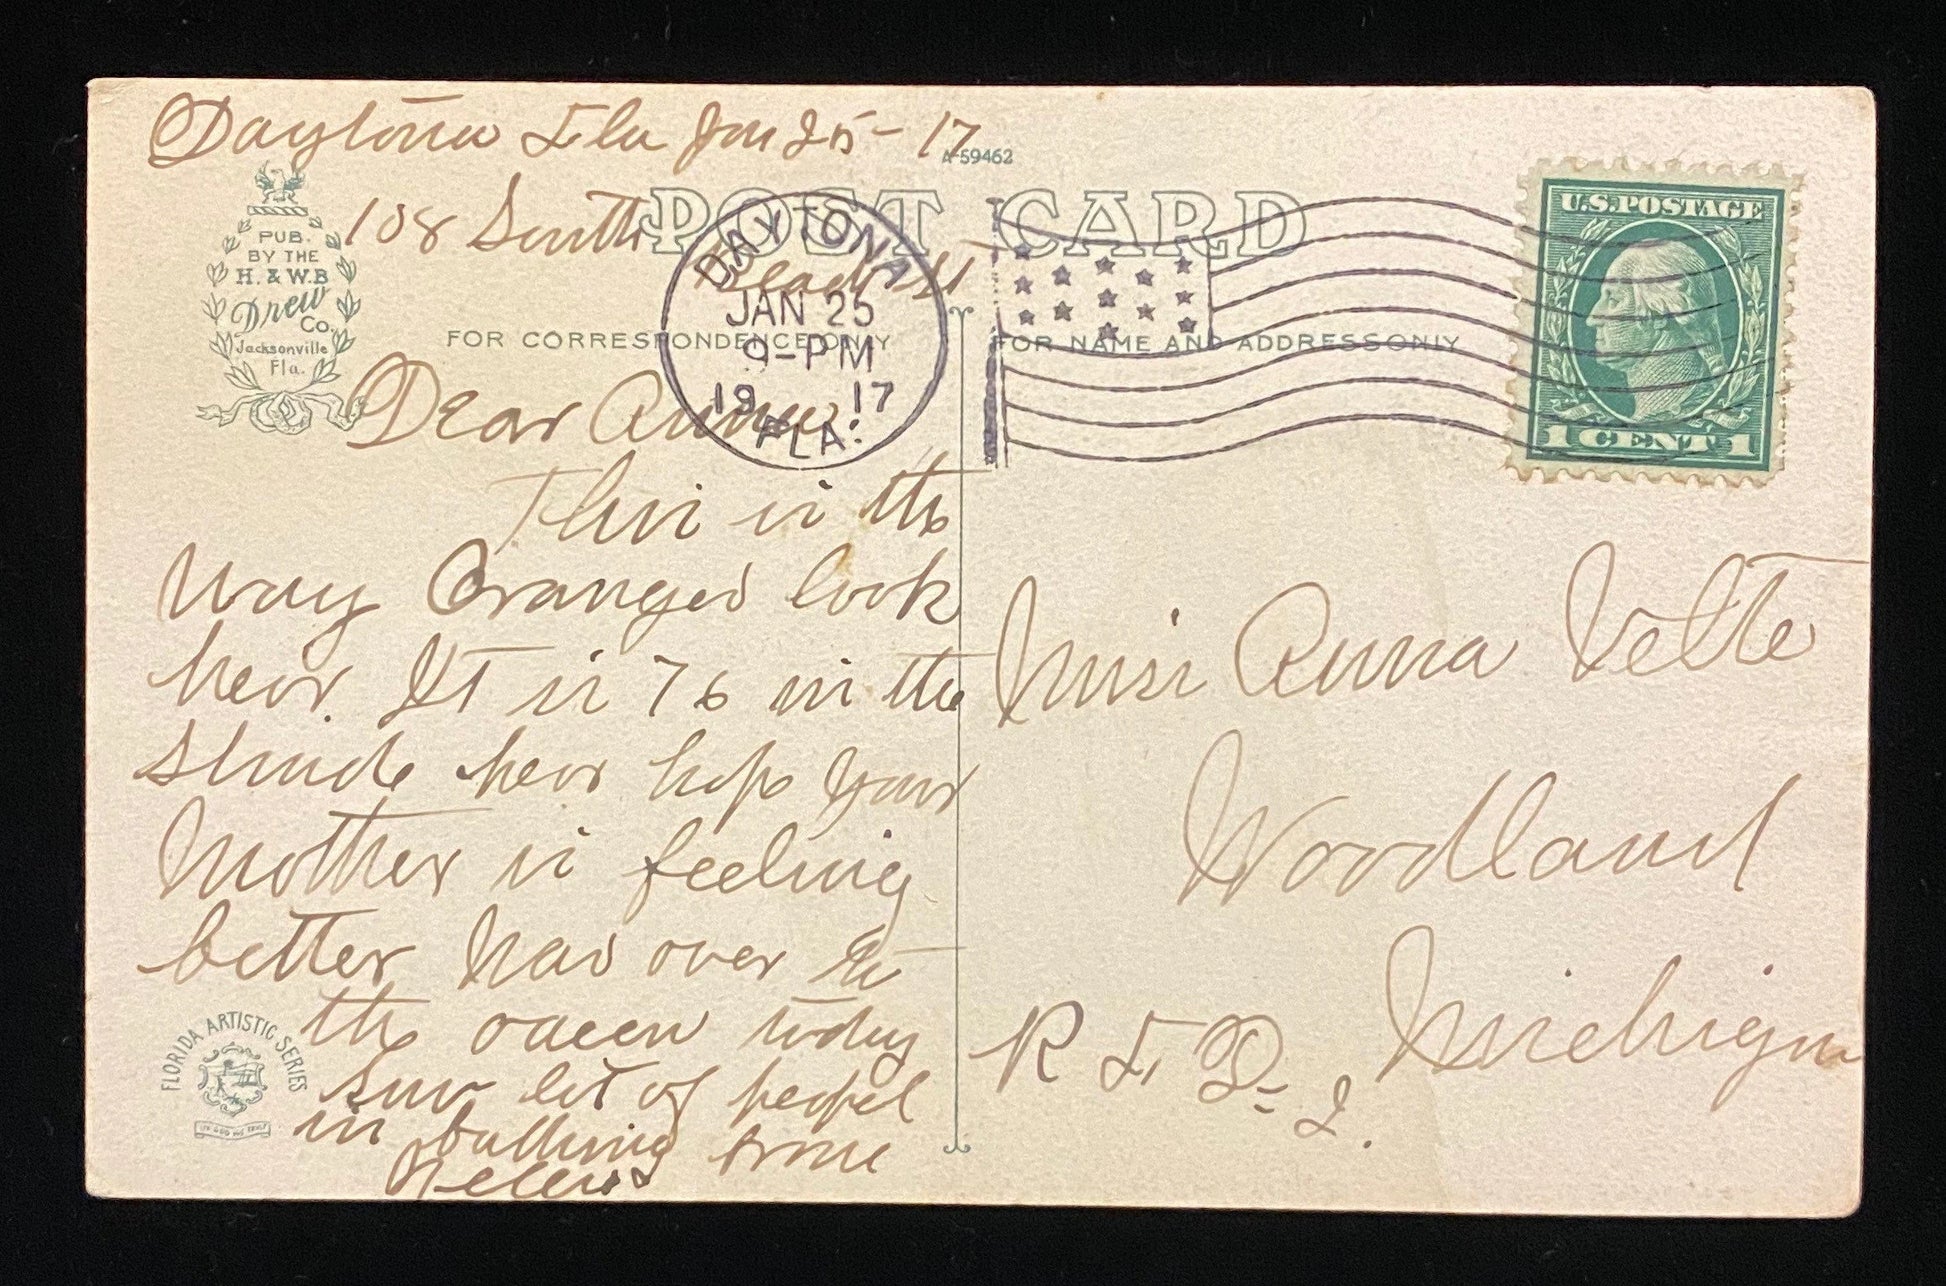 Daytona Fla Jan 25-17
A-59462
108 South
Beach St
POST CARD
PUB.
BY THE
H. & W.B
Drew
Co.
Jacksonville
Fla.
FOR CORRESPONDENCE ONLY
FOR NAME AND ADDRESS ONLY
DAYTONA
JAN 25
9-PM
19 17
FLA.
U.S. POSTAGE
1 CENT 1
Dear Anna
This is the
Way Oranges look
hear. It is 76 in the
shade hear hope your
Mother is feeling
better Was over to
the ocean today
saw lot of peopel
in bathing from
FLORIDA ARTISTIC SERIES
IN GOD WE TRUST
Miss Anna Velte
Woodland
Michigan
R F D- 2.